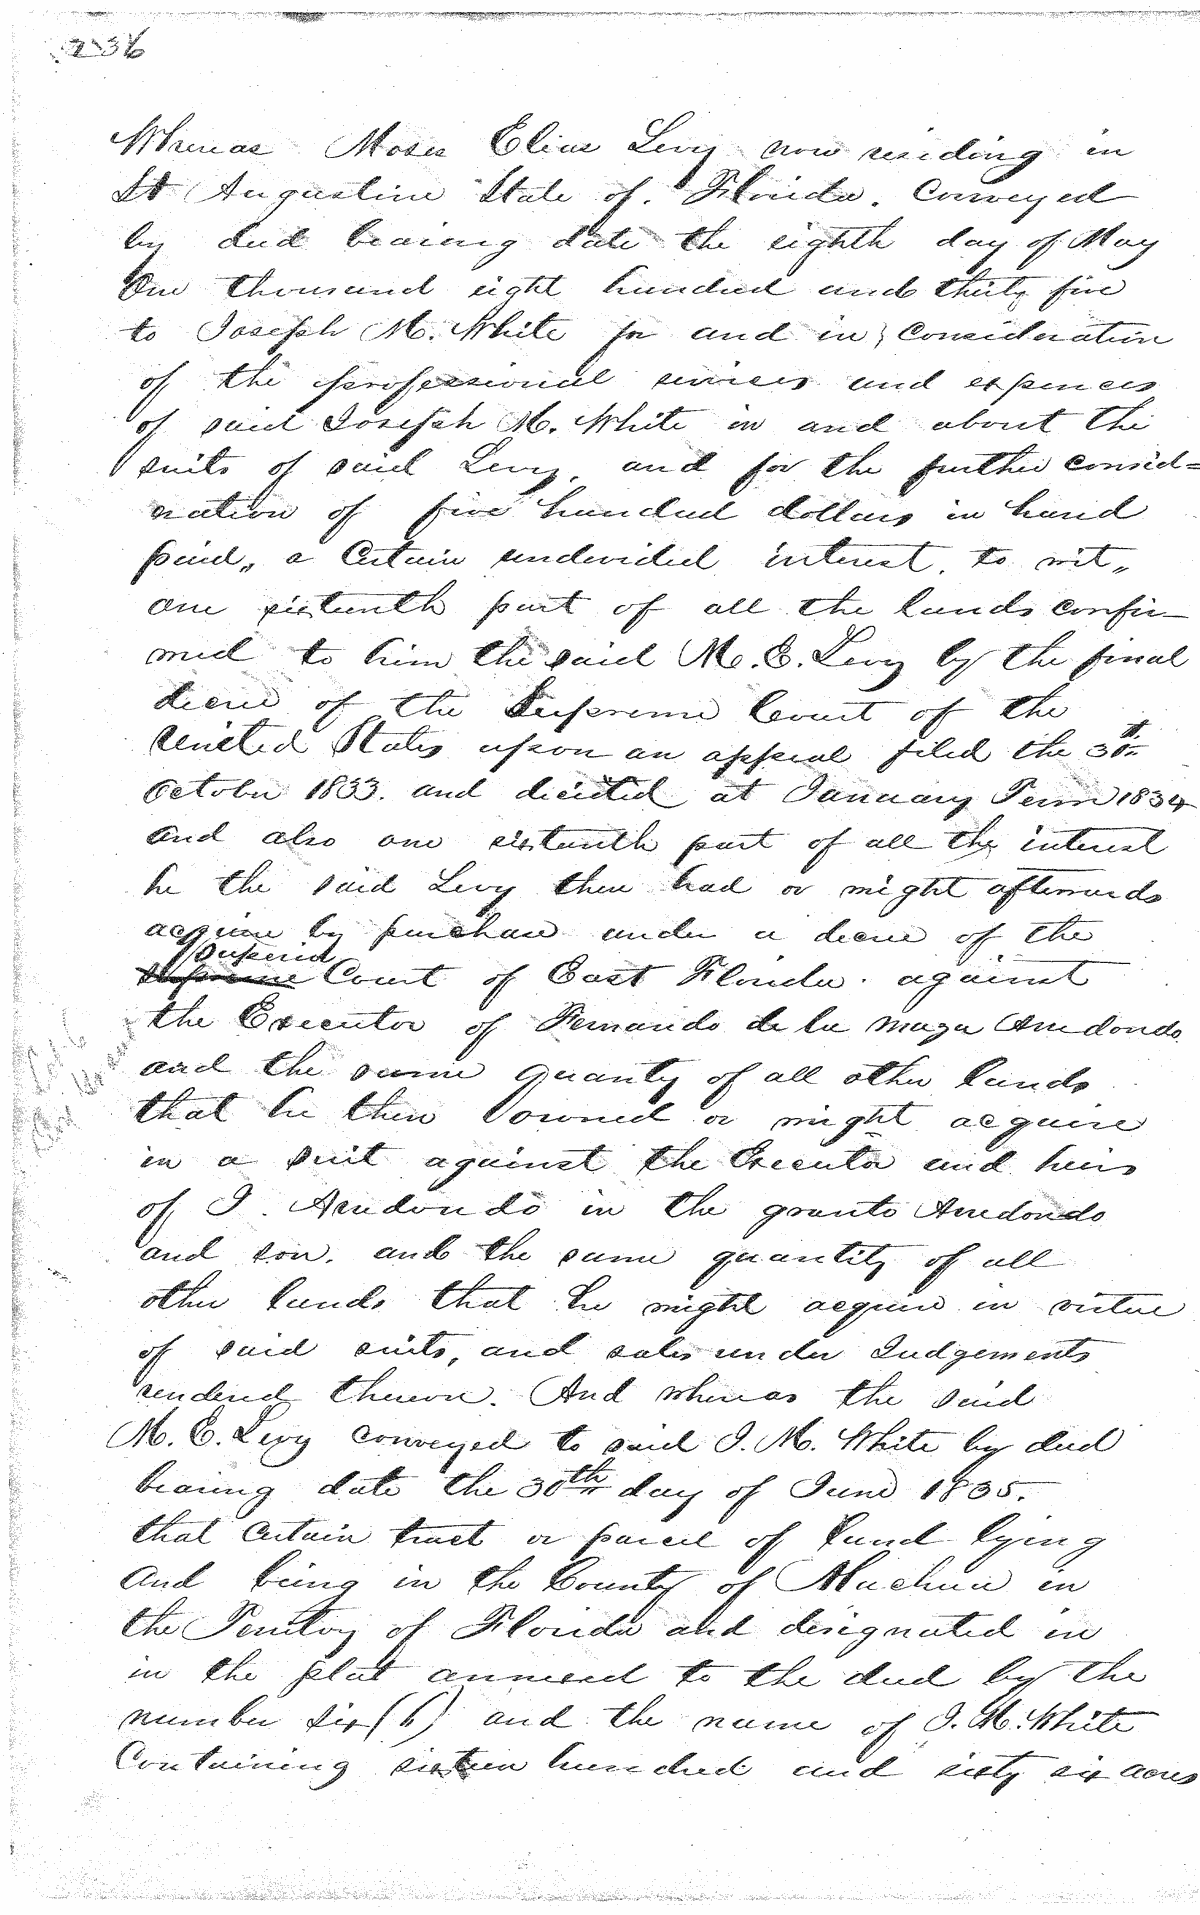 236
Whereas Moses Elias Levy now residing in
St Augustine State of Florida. Conveyed
by deed bearing date the eighth day of May
One thousand eight hundred and thirty five
to Joseph M. White for and in consideration
of the professional services and expences
of said Joseph M. White in and about the
suits of said Levy, and for the further consid=
eration of five hundred dollars in hand
paid,, a Certain undivided interest, to wit,,
one sixteenth part of all the lands confir-
med to him the said M. E. Levy by the final
decree of the Supreme Court of the
United States upon an appeal filed the 30th
October 1833. and decided at January Term 1834
and also one sixteenth part of all the interest
he the said Levy then had or might afterwards
acquire by purchase under a decree of the
Superior
Supreme Court of East Florida. against
the Executor of Fernando de la Maza Arredondo
and the same quanty of all other lands
that he then owned or might acquire
in a suit against the Executor and heirs
of J. Arredondo in the grants Arredondo
and son. and the same quantity of all
other lands that he might acquire in virtue
of said suits, and sales under Judgements
rendered thereon. And whereas the said
M. E. Levy conveyed to said J. M. White by deed
bearing date the 30th day of June 1835.
that Certain tract or parcel of land lying
and being in the County of Alachua in
the Territory of Florida and designated in
in the plat annexed to the deed by the
number six (6) and the name of J. M. White
Containing sixteen hundred and sixty six acres